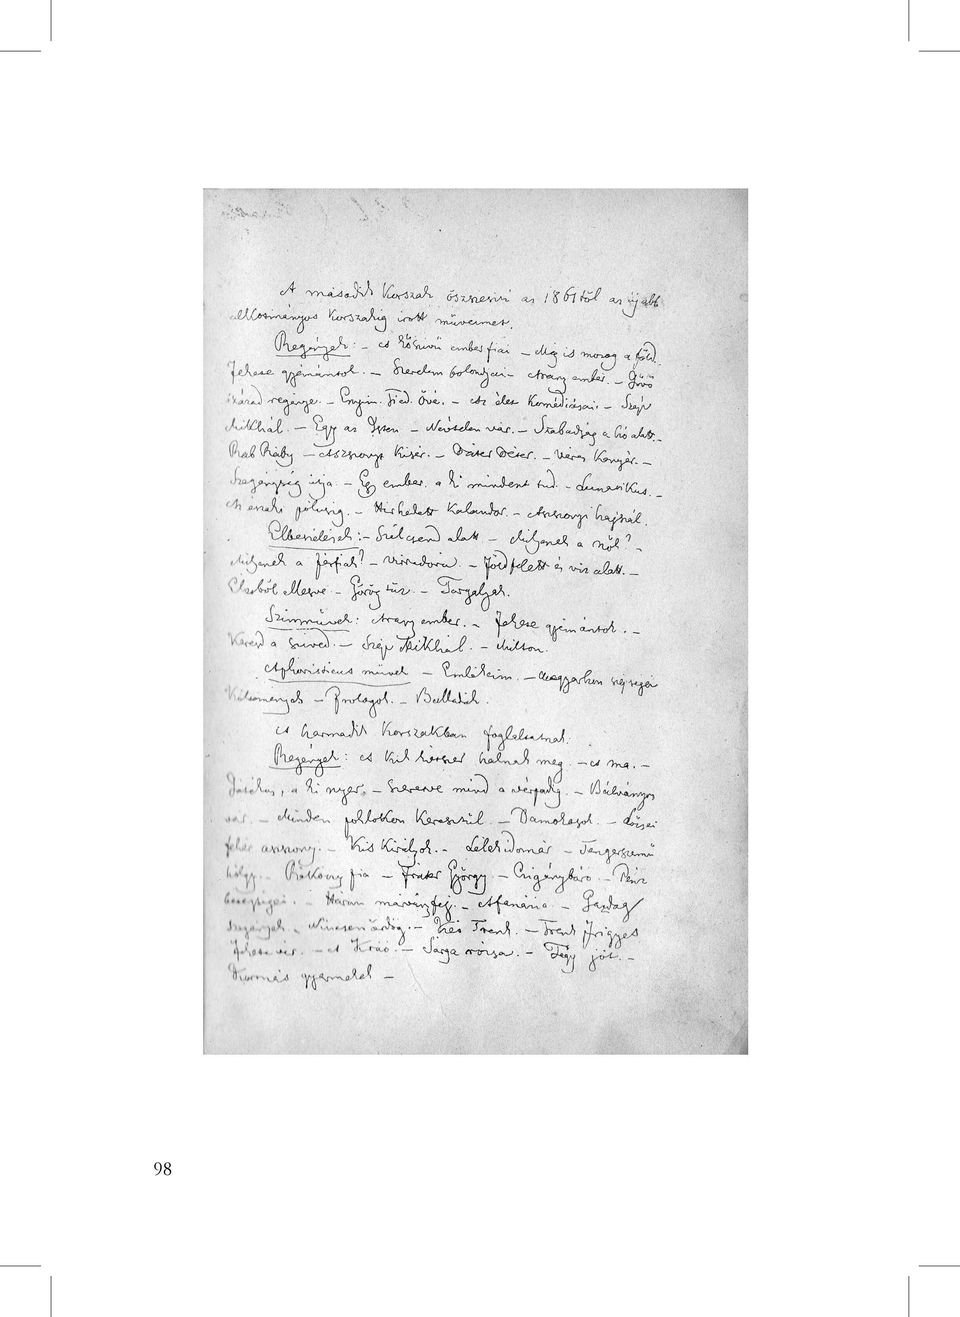 A második korszak összesíti az 1861től az újabb
alkotmányos korszakig irott műveimet.
Regények: – A kőszivü ember fiai – Még is mozog a föld.
Fekete gyémántok. – Szerelem bolondjai – Arany ember. – Jövő
század regénye. – Enyim. Tied. Övé. – Az élet komédiásai. – Szép
Mikhál. – Egy az Isten – Névtelen vár. – Szabadság a hó alatt. –
Rab Ráby – Asszonyt kisér. – Páter Péter. – Veres könyv. –
Szegénység útja. – Egy ember, a ki mindent tud. – Lunatikus. –
Az északi pólusig. – Hirhedett kalandor. – Asszonyi hajszál.
Elbeszélések: – Szélcsend alatt – Milyenek a nők? –
Milyenek a férfiak? – Virradóra. – Föld felett és viz alatt. –
Görög tüz. – Targallyak.
Szinművek: Arany ember. – Fekete gyémántok. –
Keresd a szived. – Szép Mikhál. – Milton.
Aphoristicus művek – Emlékeim. – Magyarhon szépségei
Költemények – Prologok. – Balladák.
A harmadik korszakban foglaltatnak:
Regények: A kik kétszer halnak meg – A ma. –
Játékos, a ki nyer. – Szeretve mind a vérpadig. – Bálványos
vár. – Minden poklokon keresztül. – Damokosok. – Lőcsei
fehér asszony. – Kis királyok. – Lélekidomár – Tengerszemü
hölgy. – Rákóczy fia – Fráter György – Czigánybáró. – Pénz
betegségei. – Három márványfej. – Afanázia – Gazdag
szegények. – Nincsen ördög. – Két Trenk. – Trenk Frigyes
Fekete vér. – A Kráó. – Sárga rózsa. – Tégy jót. –
gyermekek –